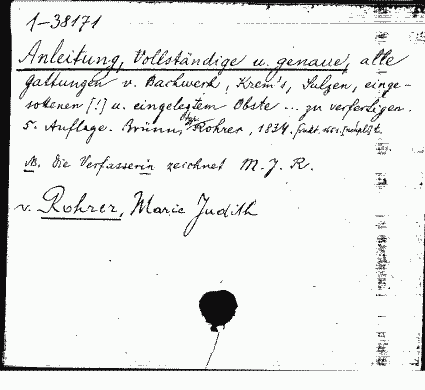 1-38171
Anleitung, Vollständige u. genaue, alle
Gattungen v. Backwerk, Krem's, Sulzen, einge-
sottenen [!] u. eingelegtem Obste ... zu verfertigen.
5. Auflage. Brünn, Rohrer, 1834.
NB. Die Verfasserin zeichnet M. J. R.
v. Rohrer, Marie Judith